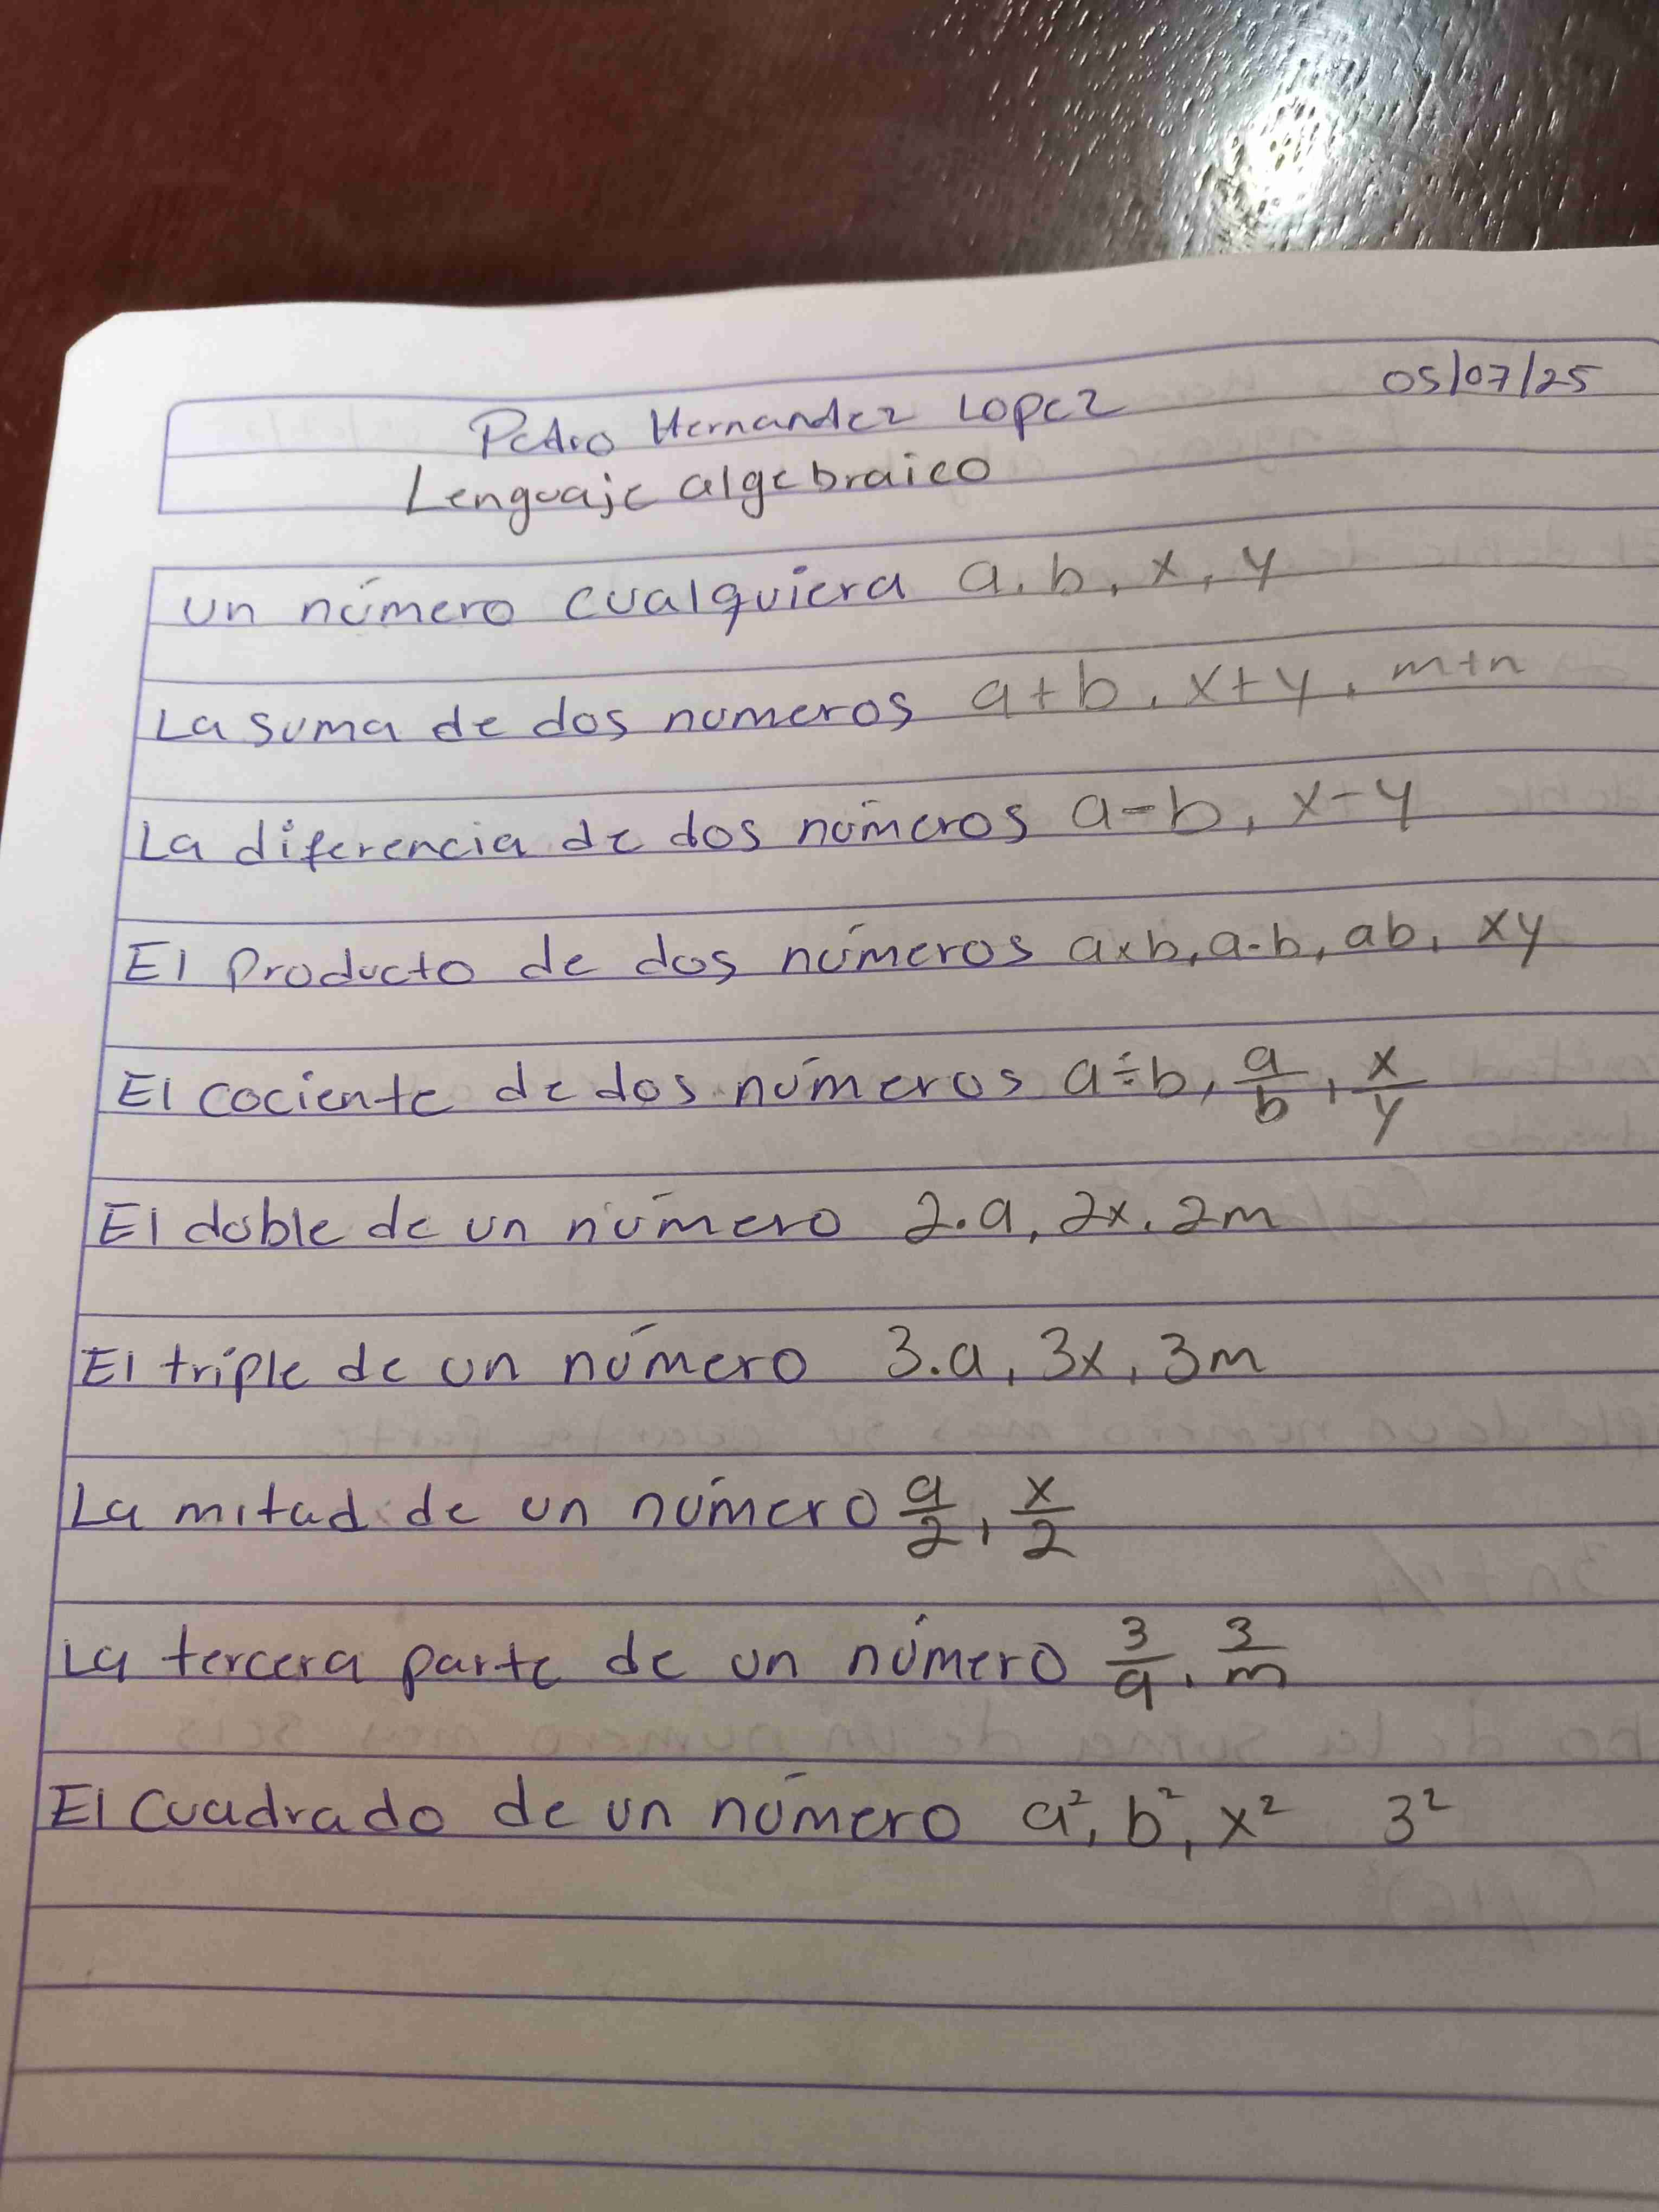 05/07/25
Pedro Hernandez Lopez
Lenguaje algebraico
un número cualquiera a, b, x, y
La suma de dos numeros a+b, x+y, m+n
La diferencia de dos números a-b, x-y
El producto de dos números a×b, a·b, ab, xy
El cociente de dos números a÷b, a/b, x/y
El doble de un número 2·a, 2x, 2m
El triple de un número 3.a, 3x, 3m
La mitad de un número a/2, x/2
La tercera parte de un número 3/a, 3/m
El cuadrado de un número a², b², x² 3²